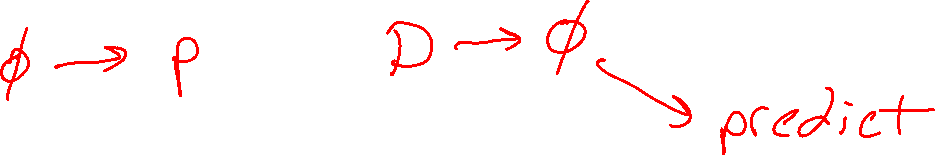 ϕ → P D → ϕ
predict